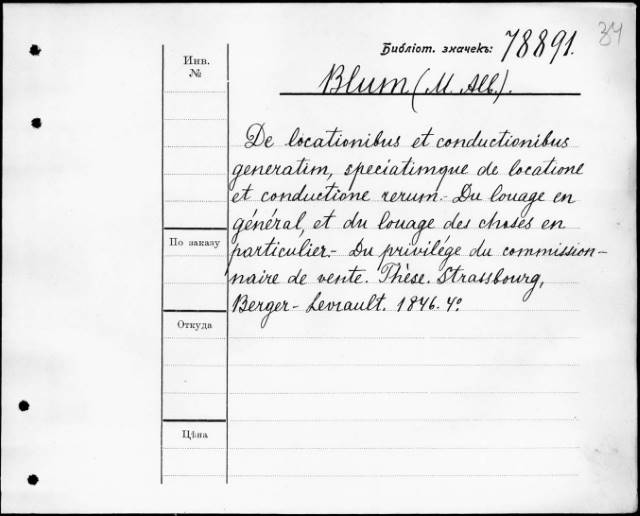 37
Библіот. значекъ: 78891.
Инв. №
Blum (M. Alb.).
De locationibus et conductionibus
generatim, speciatimque de locatione
et conductione rerum.- Du louage en
général, et du louage des choses en
particulier.- Du privilége du commission-
naire de vente. Thèse. Strassbourg,
Berger-Levrault. 1846. 4º.
По заказу
Откуда
Цѣна